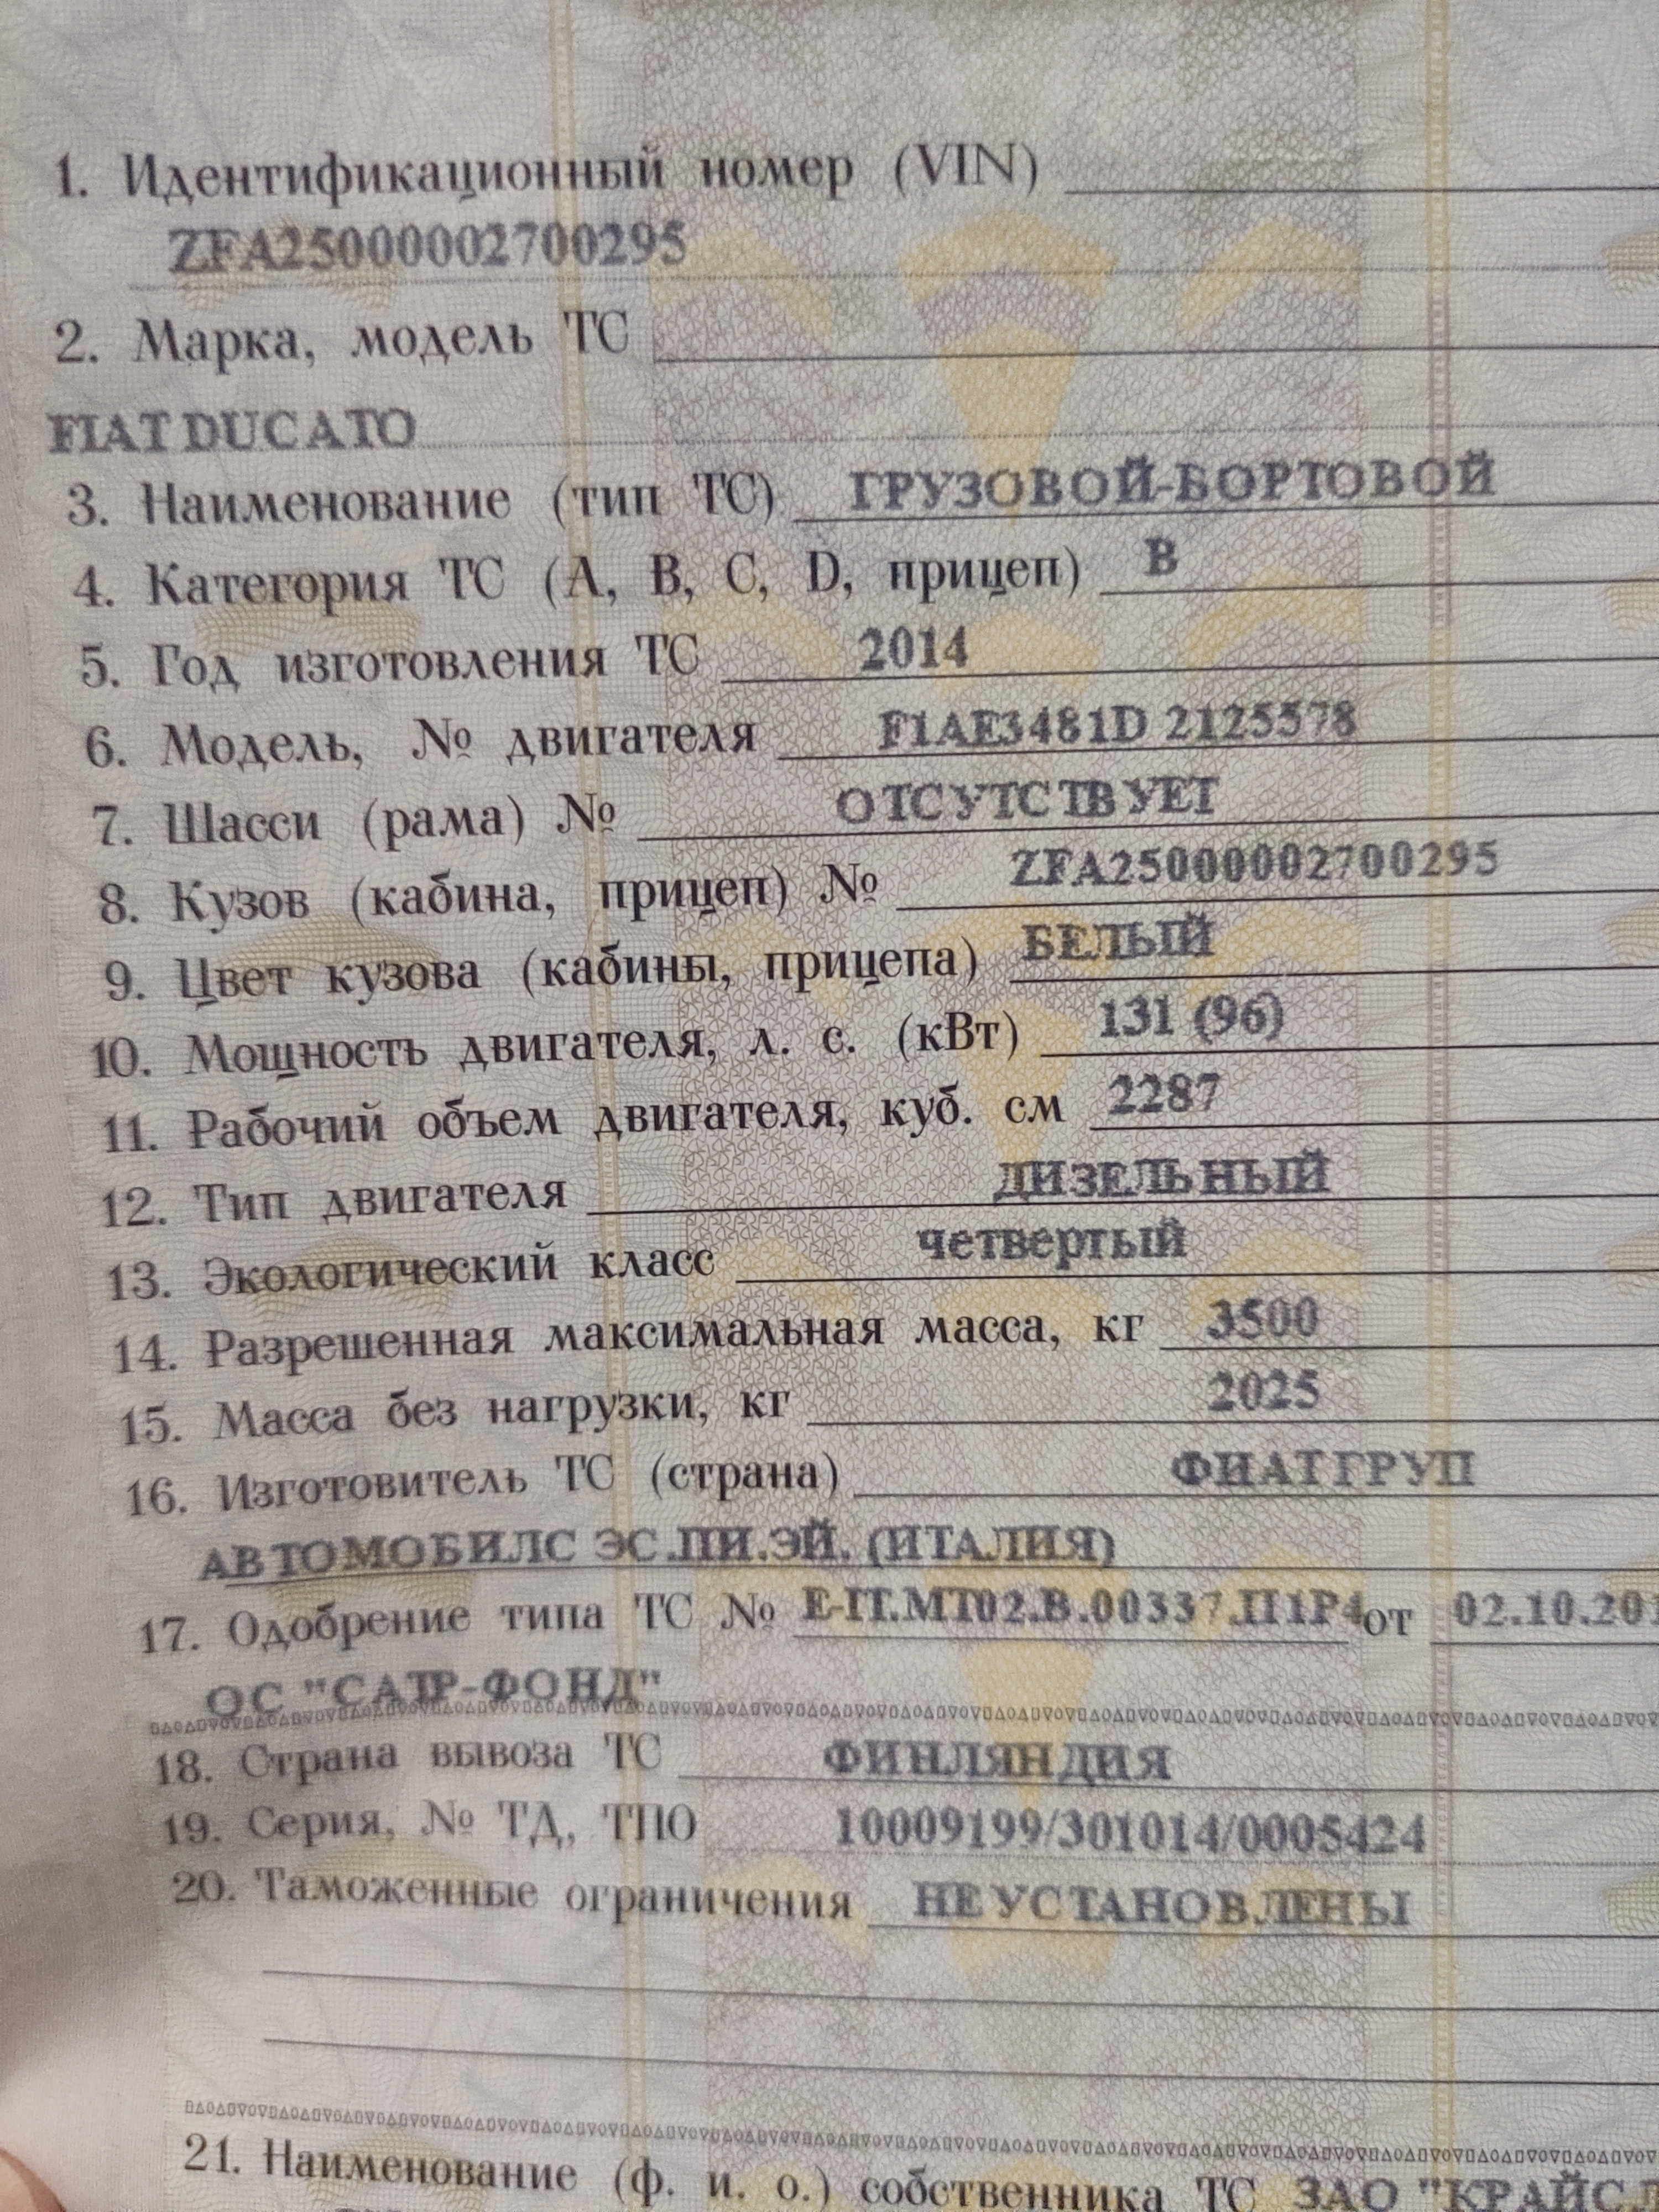 1. Идентификационный номер (VIN)
ZFA25000002700295
2. Марка, модель ТС
FIAT DUCATO
3. Наименование (тип ТС) ГРУЗОВОЙ-БОРТОВОЙ
4. Категория ТС (A, B, C, D, прицеп) B
5. Год изготовления ТС 2014
6. Модель, № двигателя F1AE3481D 2125578
7. Шасси (рама) № ОТСУТСТВУЕТ
8. Кузов (кабина, прицеп) № ZFA25000002700295
9. Цвет кузова (кабины, прицепа) БЕЛЫЙ
10. Мощность двигателя, л. с. (кВт) 131 (96)
11. Рабочий объем двигателя, куб. см 2287
12. Тип двигателя ДИЗЕЛЬНЫЙ
13. Экологический класс четвертый
14. Разрешенная максимальная масса, кг 3500
15. Масса без нагрузки, кг 2025
16. Изготовитель ТС (страна) ФИАТ ГРУП
АВТОМОБИЛС ЭС.ПИ.ЭЙ. (ИТАЛИЯ)
17. Одобрение типа ТС № E-IT.MT02.B.00337.П1Р4 от 02.10.201
ОС "САТР-ФОНД"
18. Страна вывоза ТС ФИНЛЯНДИЯ
19. Серия, № ТД, ТПО 10009199/301014/0005424
20. Таможенные ограничения НЕ УСТАНОВЛЕНЫ
21. Наименование (ф. и. о.) собственника ТС ЗАО "КРАЙСЛ